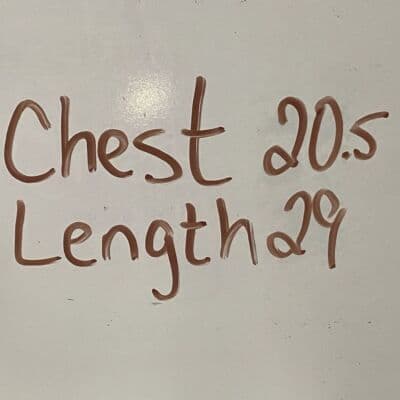 Chest 20.5
Length 29